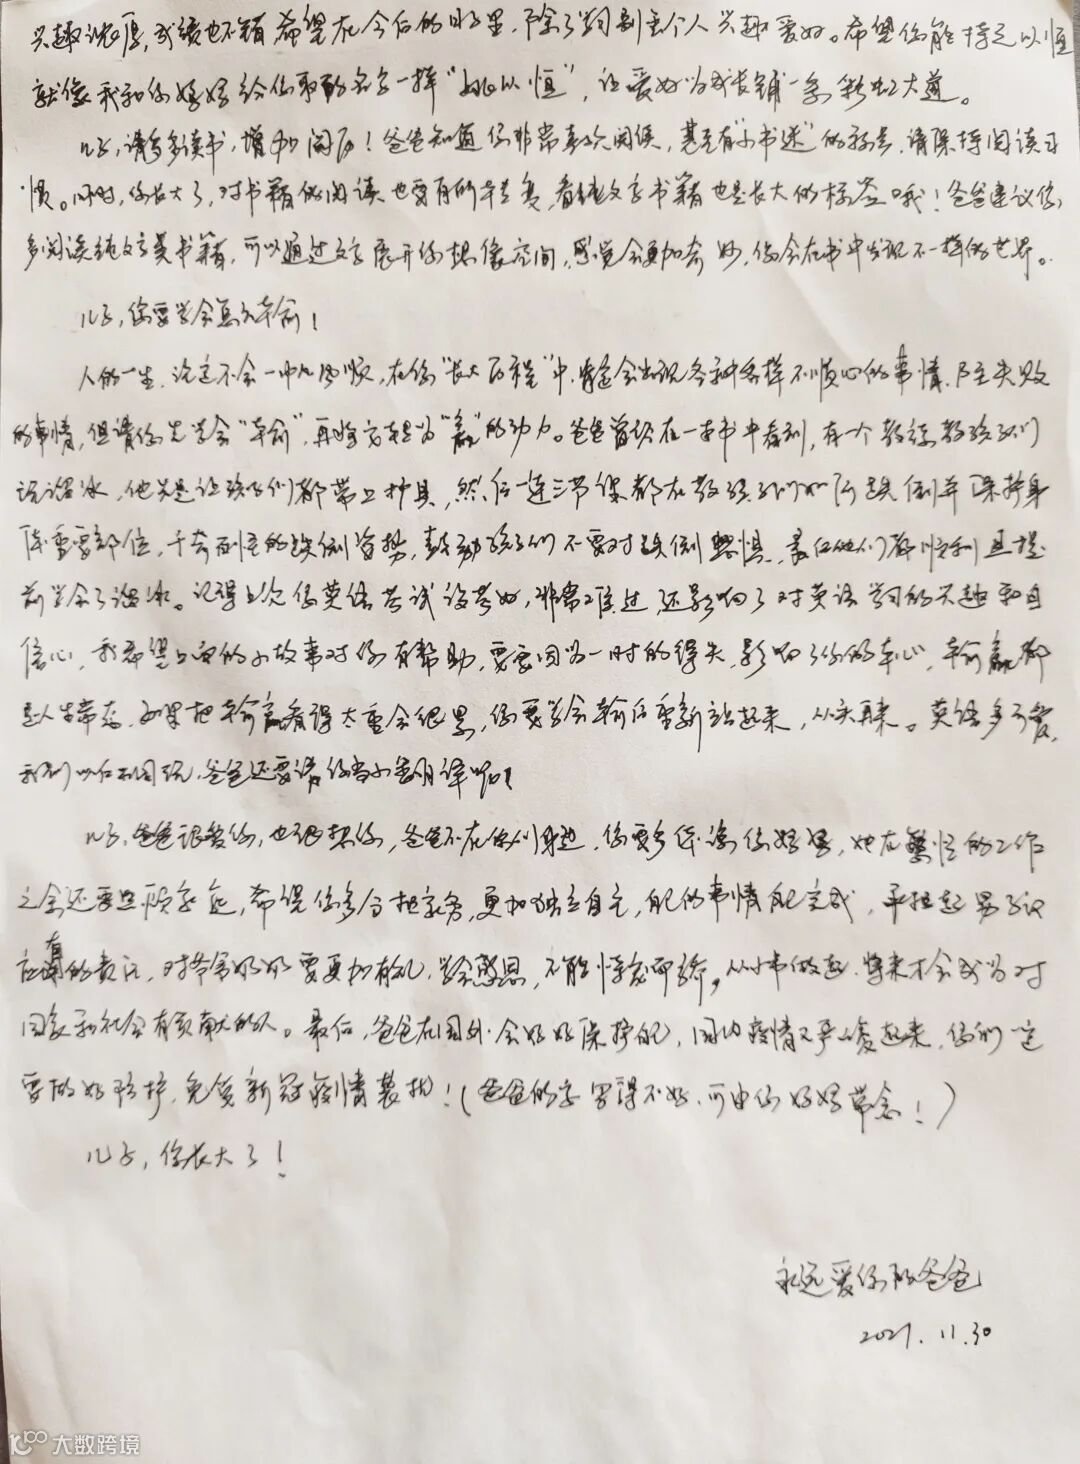 兴趣浓厚，成绩也不错，希望在今后的日子里，除了学习到主个人兴趣爱好。希望你能持之以恒
就像我和你妈妈给你取的名字一样“以恒”，让爱好为成长铺一条彩虹大道。
儿子，请多多读书，增加阅历！爸爸知道你非常喜欢阅读，甚至有“小书迷”的称号，请保持阅读习
惯。同时，你长大了，对书籍的阅读也要有所转变，看纯文字书籍也是长大的标签哦！爸爸建议你
多阅读纯文字类书籍，可以通过文字展开你想像空间，感觉会更加奇妙，你会在书中发现不一样的世界。
儿子，你要学会面对输！
人的一生，注定不会一帆风顺，在你“长大历程”中，肯定会出现各种各样不顺心的事情，甚至失败
的事情，但请你先学会“输”，再将它转为“赢”的动力。爸爸曾经在一本书中看到，有一个教练教孩子们
玩滑冰，他先是让孩子们都带上护具，然后一连三节课都在教孩子们如何跌倒并保护身
体重要部位，千奇百怪的跌倒姿势，鼓励孩子们不要对跌倒惧，最后他们都顺利且提
前学会了滑冰。记得上次你英语考试没考好，非常难过，还影响了对英语学习的兴趣和自
信心，我希望上面的小故事对你有帮助，不要因为一时的得失，影响了你的本心，输赢都
是人生常态，如果把输赢看得太重会很累，你要学会输后重新站起来，从头再来。英语多可爱，
我们以后出国玩，爸爸还要请你当小翻译呢！
儿子，爸爸很爱你，也很想你，爸爸不在你们身边，你要多体谅你妈妈，她在繁忙的工作
之余还要照顾家庭，希望你多分担家务，更加独立自主，自己的事情自己完成，承担起男子汉
应有的责任，对爷爷奶奶要更加有礼，学会感恩，不能恃宠而骄。从小事做起，将来才会成为对
国家和社会有贡献的人。最后，爸爸在国外会好好保护自己，国内疫情又严峻起来，你们一定
要做好防护，免受新冠疫情袭扰！（爸爸的字写得不好，可由你妈妈带念！）
儿子，你长大了！
永远爱你的爸爸
2021.11.30
大数跨境